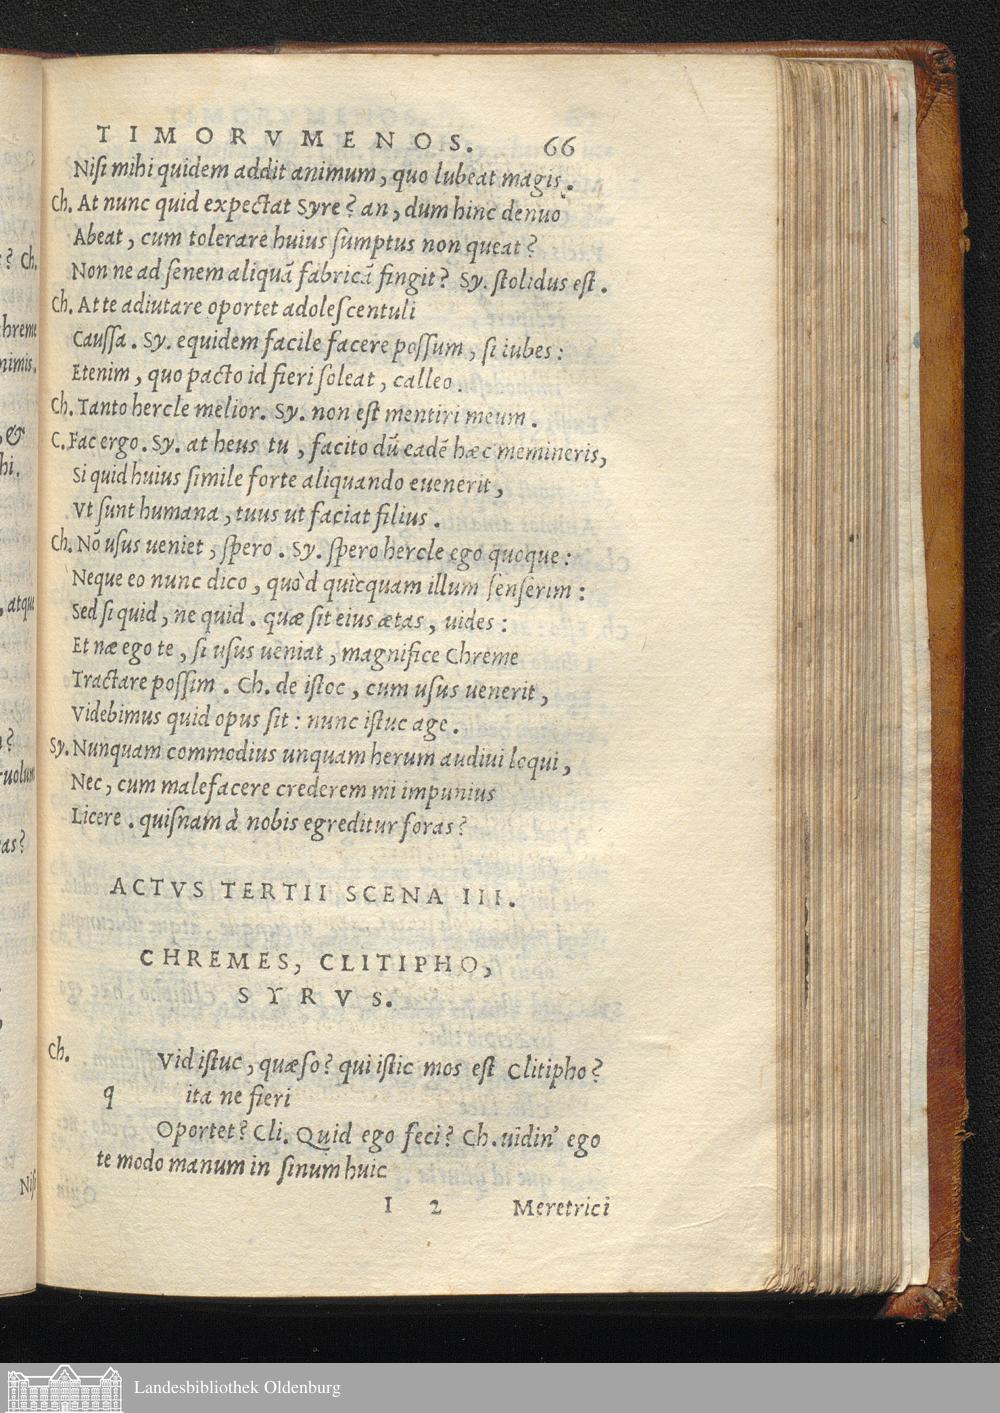 TIMORVMENOS. 66
Nisi mihi quidem addit animum, quo lubeat magis.
Ch. At nunc quid expectat Syre? an, dum hinc denuo
Abeat, cum tolerare huius sumptus non queat?
Non ne ad senem aliquã fabricã fingit? Sy. stolidus est.
Ch. At te adiutare oportet adolescentuli
Caussa. Sy. equidem facile facere possum, si iubes:
Etenim, quo pacto id fieri soleat, calleo.
Ch. Tanto hercle melior. Sy. non est mentiri meum.
C. Fac ergo. Sy. at heus tu, facito dũ eadẽ hæc memineris,
Si quid huius simile forte aliquando euenerit,
Vt sunt humana, tuus ut faciat filius.
Ch. Nõ usus ueniet, spero. Sy. spero hercle ego quoque:
Neque eo nunc dico, quòd quicquam illum senserim:
Sed si quid, ne quid. quæ sit eius ætas, uides:
Et næ ego te, si usus ueniat, magnifice Chreme
Tractare possim. Ch. de istoc, cum usus uenerit,
Videbimus quid opus sit: nunc istuc age.
Sy. Nunquam commodius unquam herum audiui loqui,
Nec, cum malefacere crederem mi impunius
Licere. quisnam à nobis egreditur foras?
ACTVS TERTII SCENA III.
CHREMES, CLITIPHO,
SYRVS.
Ch. Vid istuc, quæso? qui istic mos est Clitipho?
q ita ne fieri
Oportet? Cli. Quid ego feci? Ch. uidin' ego
te modo manum in sinum huic
I 2 Meretrici
? Ch.
hreme
nimis.
, &
hi.
, atque
?
uolum
as?
Nis
Landesbibliothek Oldenburg